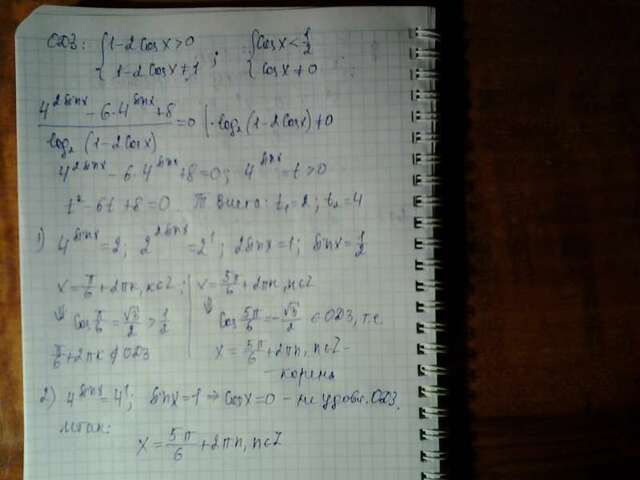 ОДЗ: { 1-2cosx>0 ; { cosx<1/2
{ 1-2cosx≠1 { cosx≠0
(4^(2sinx) - 6·4^(sinx) + 8) / log₂(1-2cosx) = 0 | · log₂(1-2cosx)≠0
4^(2sinx) - 6·4^(sinx) + 8 = 0; 4^(sinx) = t > 0
t² - 6t + 8 = 0 Т. Виета: t₁=2; t₂=4
1) 4^(sinx) = 2; 2^(2sinx) = 2¹; 2sinx=1; sinx=1/2
x=π/6+2πк, к∈Z; | x=5π/6+2πn, n∈Z
⇓ cos π/6 = √3/2 > 1/2 | ⇓ cos 5π/6 = -√3/2 ∈ ОДЗ, т.е.
π/6+2πк ∉ ОДЗ | x=5π/6+2πn, n∈Z-
- корень
2) 4^(sinx) = 4¹; sinx=1 ⇒ cosx=0 - не удовл. ОДЗ.
Итак:
x = 5π/6 + 2πn, n∈Z